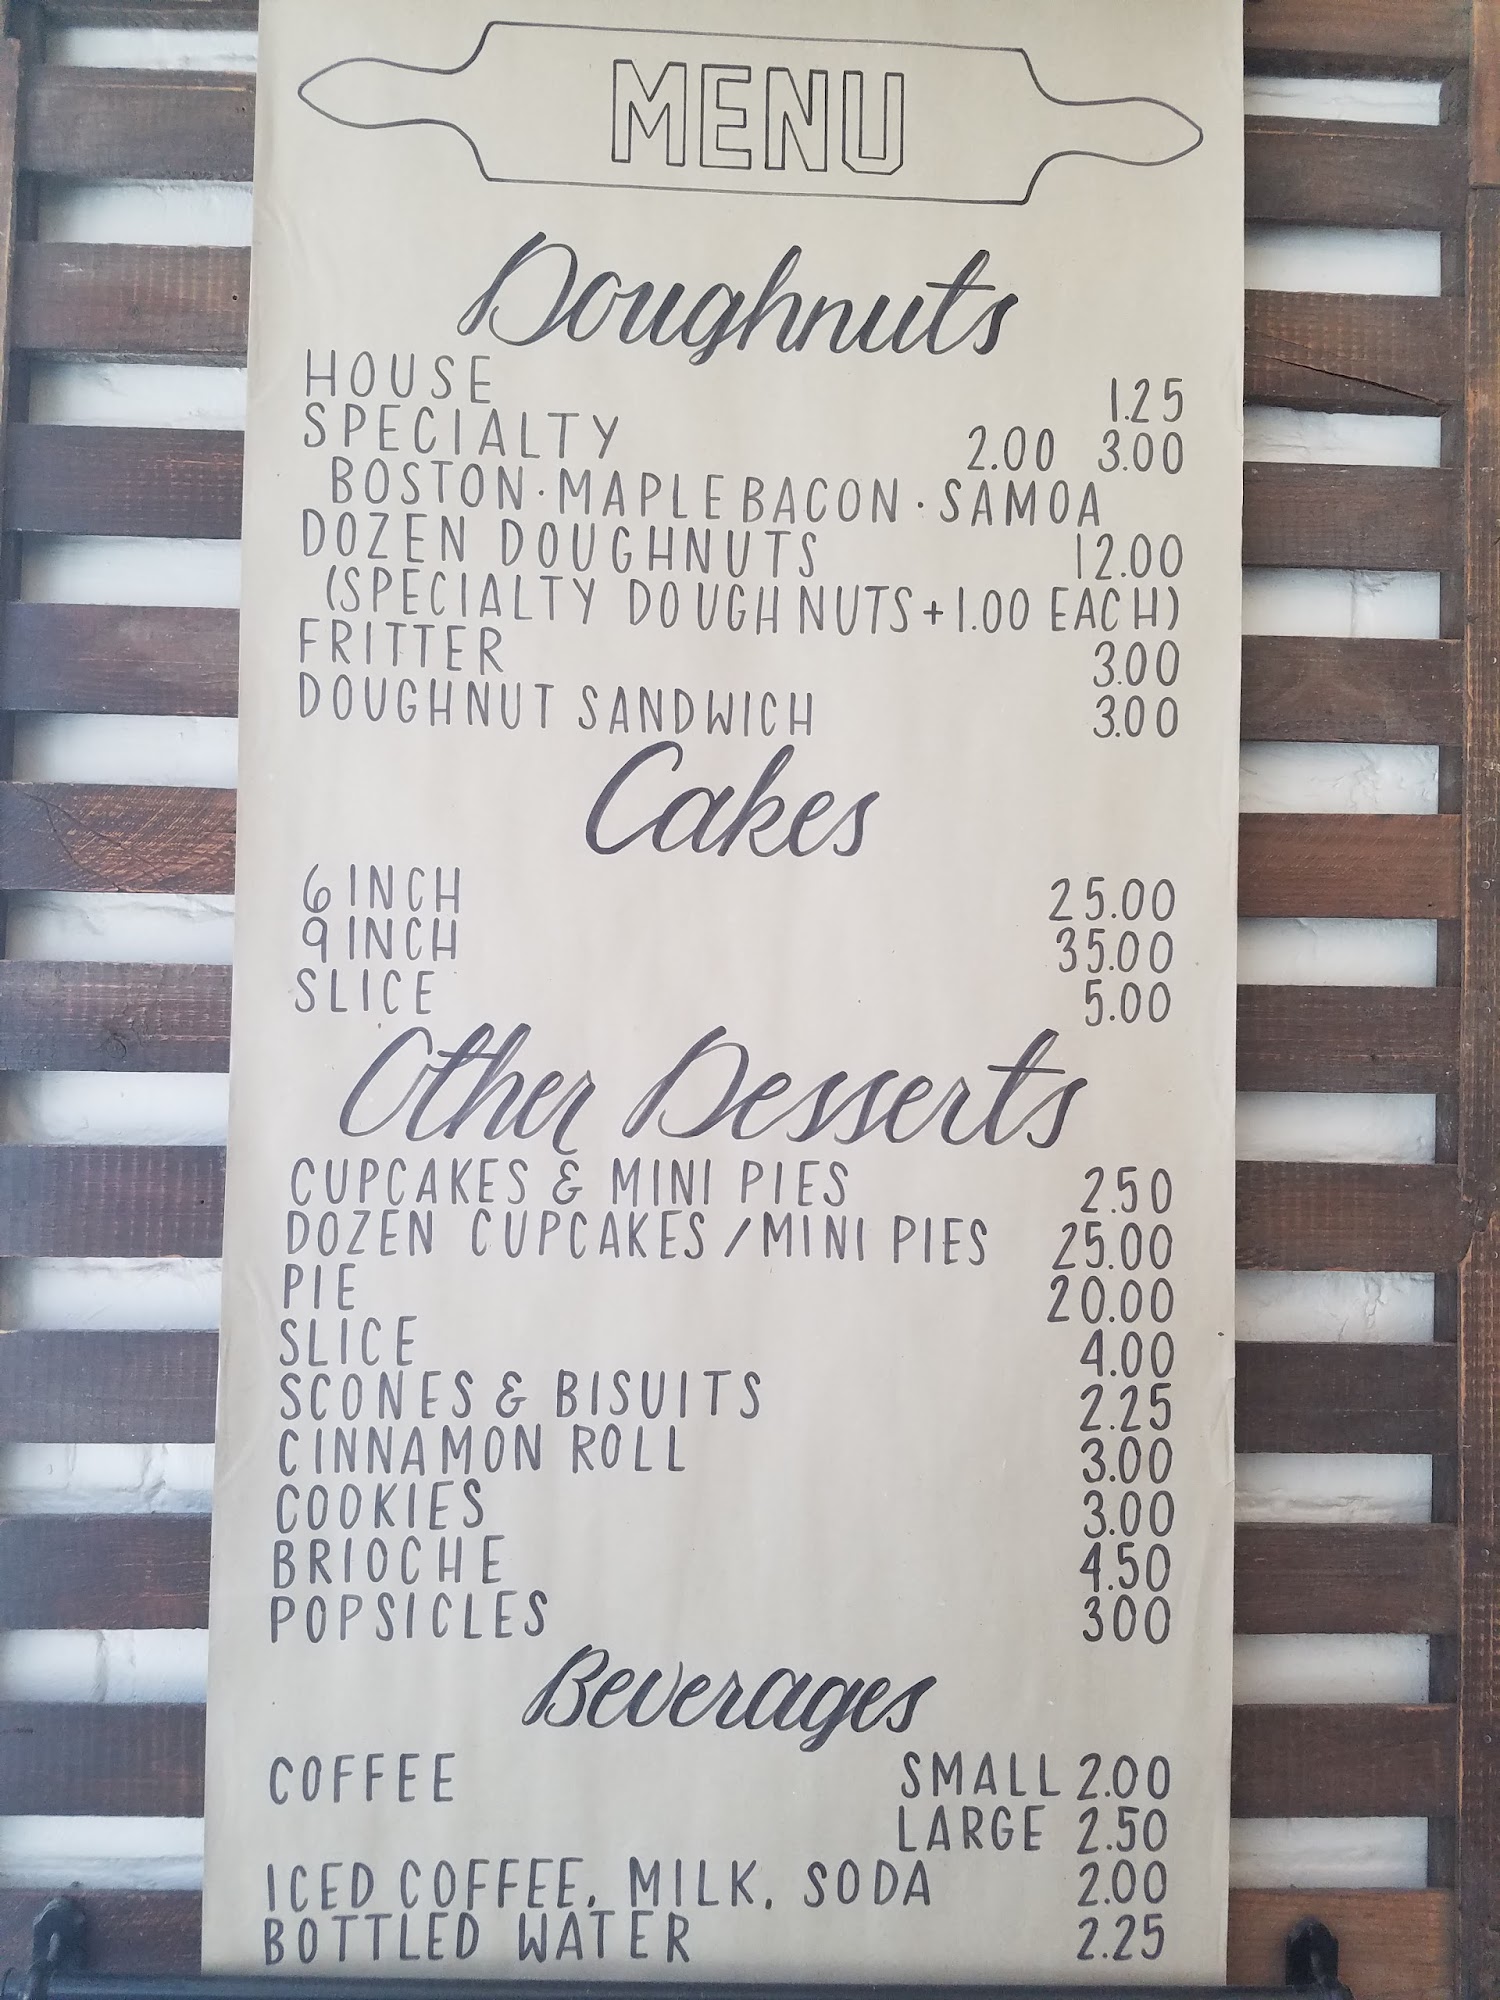 MENU
Doughnuts
HOUSE 1.25
SPECIALTY 2.00 3.00
BOSTON · MAPLE BACON · SAMOA
DOZEN DOUGHNUTS 12.00
(SPECIALTY DOUGHNUTS + 1.00 EACH)
FRITTER 3.00
DOUGHNUT SANDWICH 3.00
Cakes
6 INCH 25.00
9 INCH 35.00
SLICE 5.00
Other Desserts
CUPCAKES & MINI PIES 2.50
DOZEN CUPCAKES / MINI PIES 25.00
PIE 20.00
SLICE 4.00
SCONES & BISUITS 2.25
CINNAMON ROLL 3.00
COOKIES 3.00
BRIOCHE 4.50
POPSICLES 300
Beverages
COFFEE SMALL 2.00
LARGE 2.50
ICED COFFEE, MILK, SODA 2.00
BOTTLED WATER 2.25